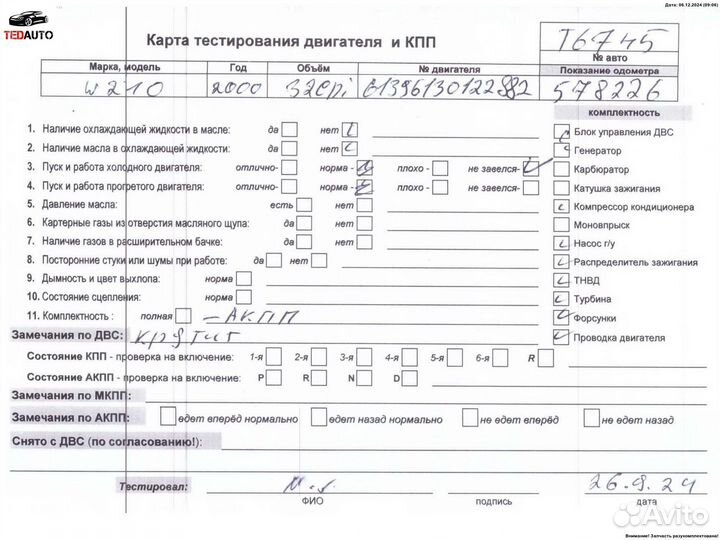 Дата: 06.12.2024 (09:06)
TEDАUTO
Карта тестирования двигателя и КПП
T6745
№ авто
Марка, модель Год Объём № двигателя Показание одометра
W210 2000 32cpi 61396130122982 578226
комплектность
1. Наличие охлаждающей жидкости в масле: да нет
Блок управления ДВС
2. Наличие масла в охлаждающей жидкости: да нет
Генератор
3. Пуск и работа холодного двигателя: отлично- норма - плохо - не завелся-
Карбюратор
4. Пуск и работа прогретого двигателя: отлично- норма - плохо - не завелся-
Катушка зажигания
5. Давление масла: есть нет
Компрессор кондиционера
6. Картерные газы из отверстия масляного щупа: да нет
Моновпрыск
7. Наличие газов в расширительном бачке: да нет
Насос г/у
8. Посторонние стуки или шумы при работе: да нет
Распределитель зажигания
9. Дымность и цвет выхлопа: норма
ТНВД
10. Состояние сцепления: норма
Турбина
11. Комплектность : полная - АКПП
Форсунки
Замечания по ДВС: крутит
Проводка двигателя
Состояние КПП - проверка на включение: 1-я 2-я 3-я 4-я 5-я 6-я R
Состояние АКПП - проверка на включение: P R N D
Замечания по МКПП:
Замечания по АКПП: едет вперёд нормально едет назад нормально не едет вперёд не едет назад
Снято с ДВС (по согласованию!):
Тестировал: 26.9.24
ФИО подпись дата
Avito
Внимание! Запчасть разукомплектована!